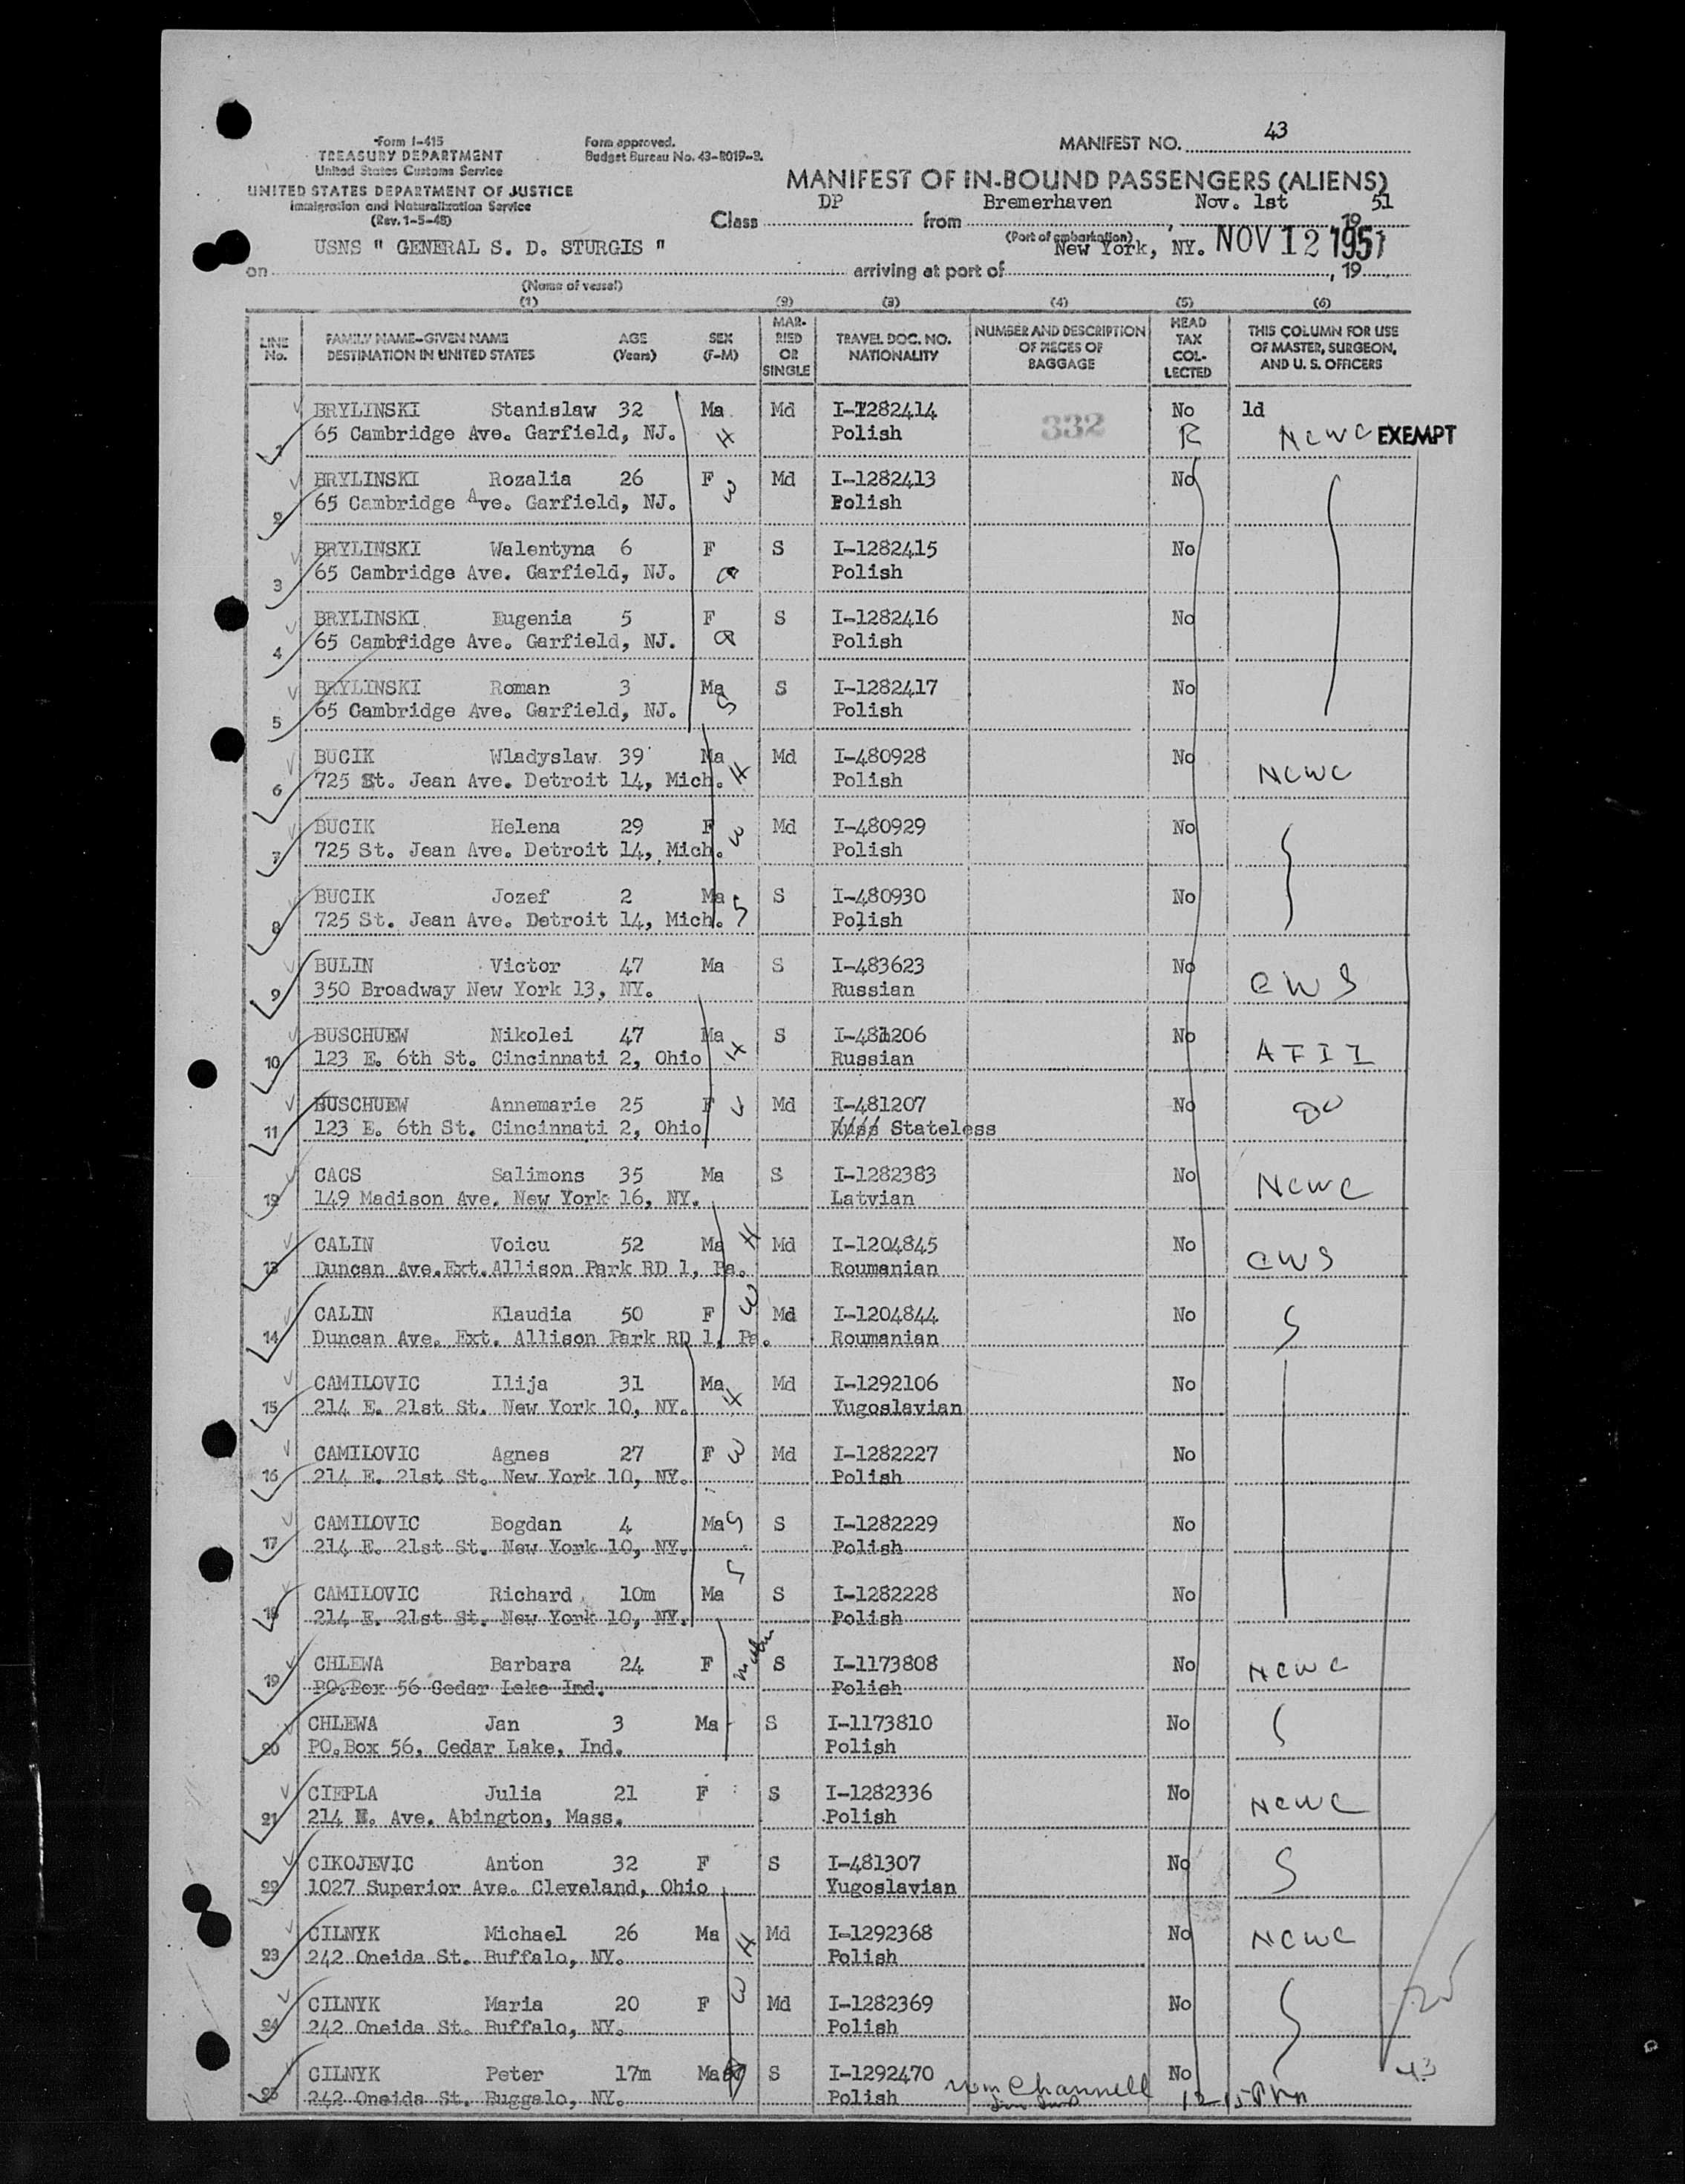 Form I-415
TREASURY DEPARTMENT
United States Customs Service
UNITED STATES DEPARTMENT OF JUSTICE
Immigration and Naturalization Service
(Rev. 1-5-48)
Form approved.
Budget Bureau No. 43-R019-3.
MANIFEST NO. 43
MANIFEST OF IN-BOUND PASSENGERS (ALIENS)
Class DP from Bremerhaven, Nov. 1st 1951
(Port of embarkation)
on USNS " GENERAL S. D. STURGIS " arriving at port of New York, NY. NOV 12 1951, 19
(Name of vessel)
(1) (2) (3) (4) (5) (6)
LINE No. FAMILY NAME-GIVEN NAME DESTINATION IN UNITED STATES AGE (Years) SEX (F-M) MARRIED OR SINGLE TRAVEL DOC. NO. NATIONALITY NUMBER AND DESCRIPTION OF PIECES OF BAGGAGE HEAD TAX COLLECTED THIS COLUMN FOR USE OF MASTER, SURGEON, AND U. S. OFFICERS
BRYLINSKI Stanislaw 32 Ma Md I-1282414 332 No 1d
65 Cambridge Ave. Garfield, NJ. H Polish R NCWC EXEMPT
2 BRYLINSKI Rozalia 26 F W Md I-1282413 No
65 Cambridge Ave. Garfield, NJ. Polish
3 BRYLINSKI Walentyna 6 F S I-1282415 No
65 Cambridge Ave. Garfield, NJ. Polish
4 BRYLINSKI Eugenia 5 F S I-1282416 No
65 Cambridge Ave. Garfield, NJ. Polish
5 BRYLINSKI Roman 3 Ma S S I-1282417 No
65 Cambridge Ave. Garfield, NJ. Polish
6 BUCIK Wladyslaw 39 Ma Md I-480928 No
725 St. Jean Ave. Detroit 14, Mich. H Polish NCWC
7 BUCIK Helena 29 F W Md I-480929 No
725 St. Jean Ave. Detroit 14, Mich. Polish
8 BUCIK Jozef 2 Ma S S I-480930 No
725 St. Jean Ave. Detroit 14, Mich. Polish
9 BULIN Victor 47 Ma S I-483623 No
350 Broadway New York 13, NY. Russian CWS
10 BUSCHUEW Nikolei 47 Ma S I-481206 No
123 E. 6th St. Cincinnati 2, Ohio H Russian AFII
11 BUSCHUEW Annemarie 25 F W Md I-481207 No Do
123 E. 6th St. Cincinnati 2, Ohio Russ Stateless
12 CACS Salimons 35 Ma S I-1282383 No
149 Madison Ave. New York 16, NY. Latvian NCWC
13 CALIN Voicu 52 Ma H Md I-1204845 No
Duncan Ave.Ext.Allison Park RD 1, Pa. Roumanian CWS
14 CALIN Klaudia 50 F W Md I-1204844 No
Duncan Ave. Ext. Allison Park RD 1, Pa. Roumanian
15 CAMILOVIC Ilija 31 Ma H Md I-1292106 No
214 E. 21st St. New York 10, NY. Yugoslavian
16 CAMILOVIC Agnes 27 F W Md I-1282227 No
214 E. 21st St. New York 10, NY. Polish
17 CAMILOVIC Bogdan 4 Ma S S I-1282229 No
214 E. 21st St. New York 10, NY. Polish
18 CAMILOVIC Richard 10m Ma S S I-1282228 No
214 E. 21st St. New York 10, NY. Polish
19 CHLEWA Barbara 24 F S I-1173808 No NCWC
PO.Box 56 Cedar Lake Ind. Polish
20 CHLEWA Jan 3 Ma S I-1173810 No
PO.Box 56, Cedar Lake, Ind. Polish
21 CIEPLA Julia 21 F S I-1282336 No
214 N. Ave. Abington, Mass. Polish NCWC
22 CIKOJEVIC Anton 32 F S I-481307 No
1027 Superior Ave. Cleveland, Ohio Yugoslavian
23 CILNYK Michael 26 Ma H Md I-1292368 No NCWC
242 Oneida St. Buffalo, NY. Polish
24 CILNYK Maria 20 F W Md I-1282369 No
242 Oneida St. Buffalo, NY. Polish
25 CILNYK Peter 17m Ma S I-1292470 No
242 Oneida St. Buggalo, NY. Polish Wm Channell 12 15 Pm
25
43